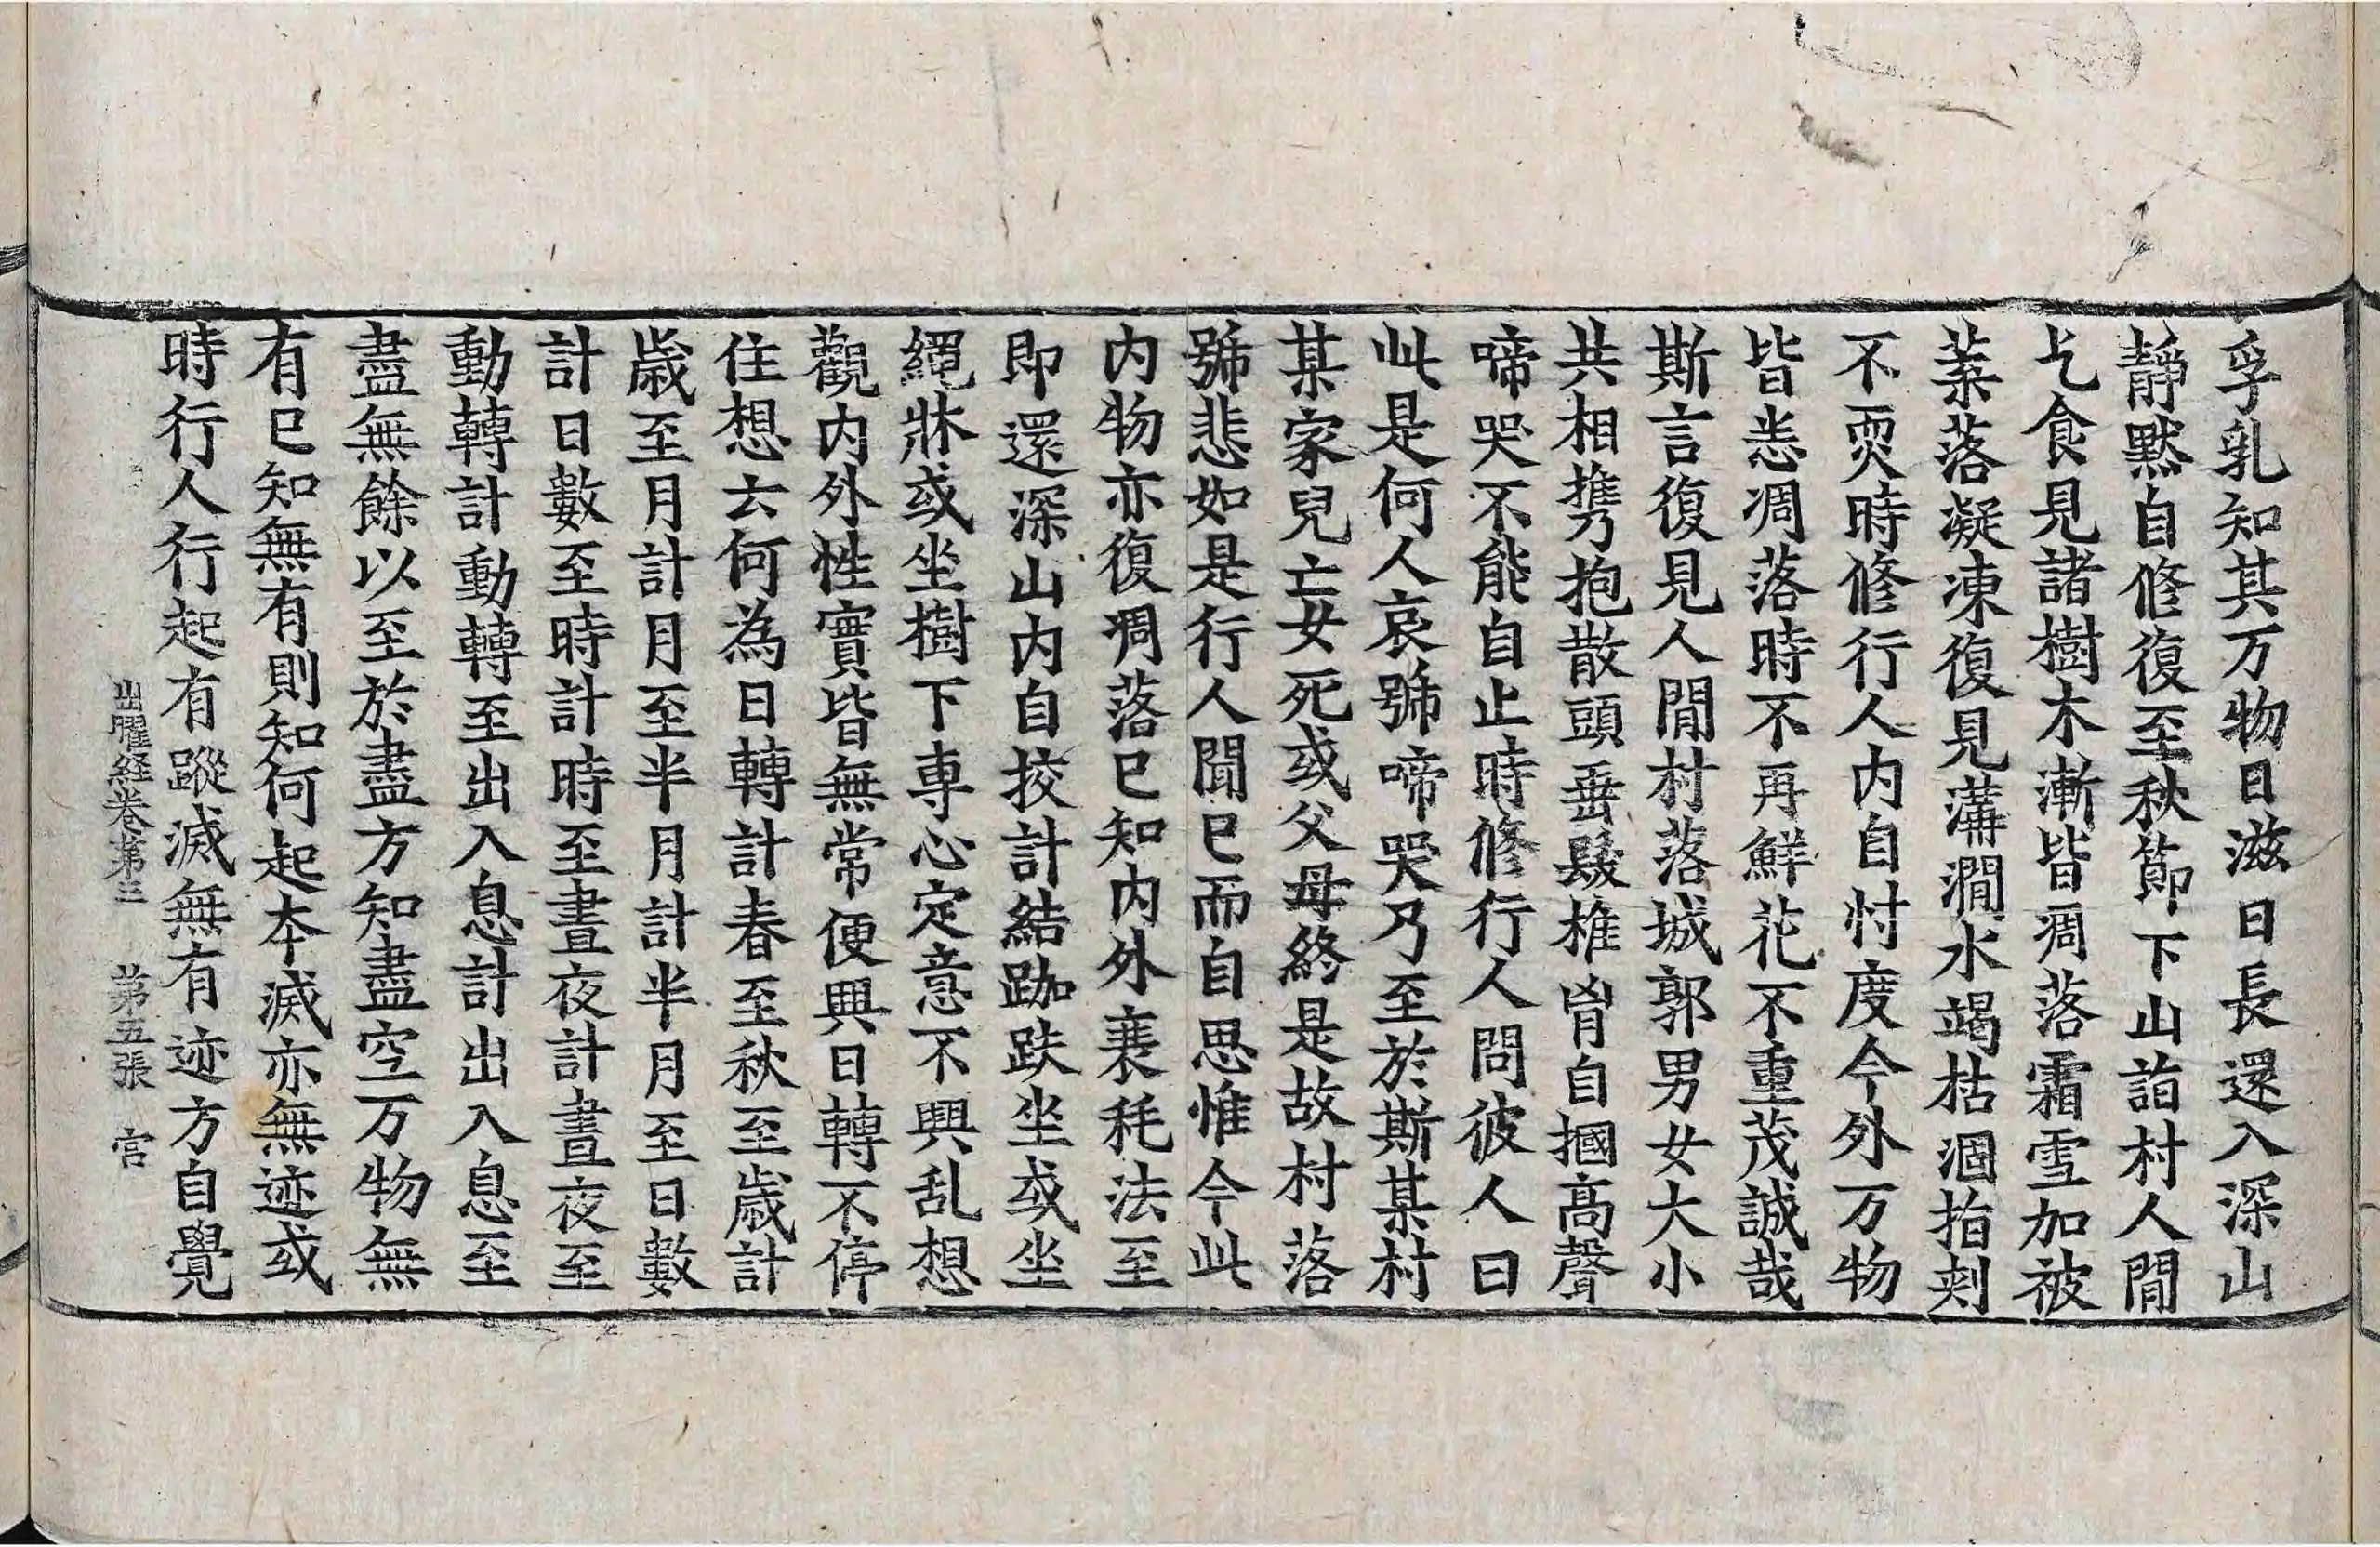 孚乳知其万物日滋日長還入深山
静黙自修復至秋節下山詣村人間
乞食見諸樹木漸皆凋落霜雪加被
葉落凝凍復見溝澗水竭枯涸指刾
不耎時修行人内自忖度今外万物
皆悉凋落時不再鮮花不重茂誠哉
斯言復見人間村落城郭男女大小
共相携抱散頭垂髮椎胷自摑高聲
啼哭不能自止時修行人問彼人曰
此是何人哀號啼哭乃至於斯某村
某家兒亡女死或父母終是故村落
號悲如是行人聞已而自思惟今此
内物亦復凋落已知内外衰耗法至
即還深山内自挍計結跏趺坐或坐
繩牀或坐樹下専心定意不興乱想
觀内外性實皆無常便興日轉不停
住想云何為日轉計春至秋至歲計
歲至月計月至半月計半月至日數
計日數至時計時至晝夜計晝夜至
動轉計動轉至出入息計出入息至
盡無餘以至於盡方知盡空万物無
有已知無有則知何起夲滅亦無迹或
時行人行起有蹤滅無有迹方自覺
出曜経卷苐三 苐五張 宫